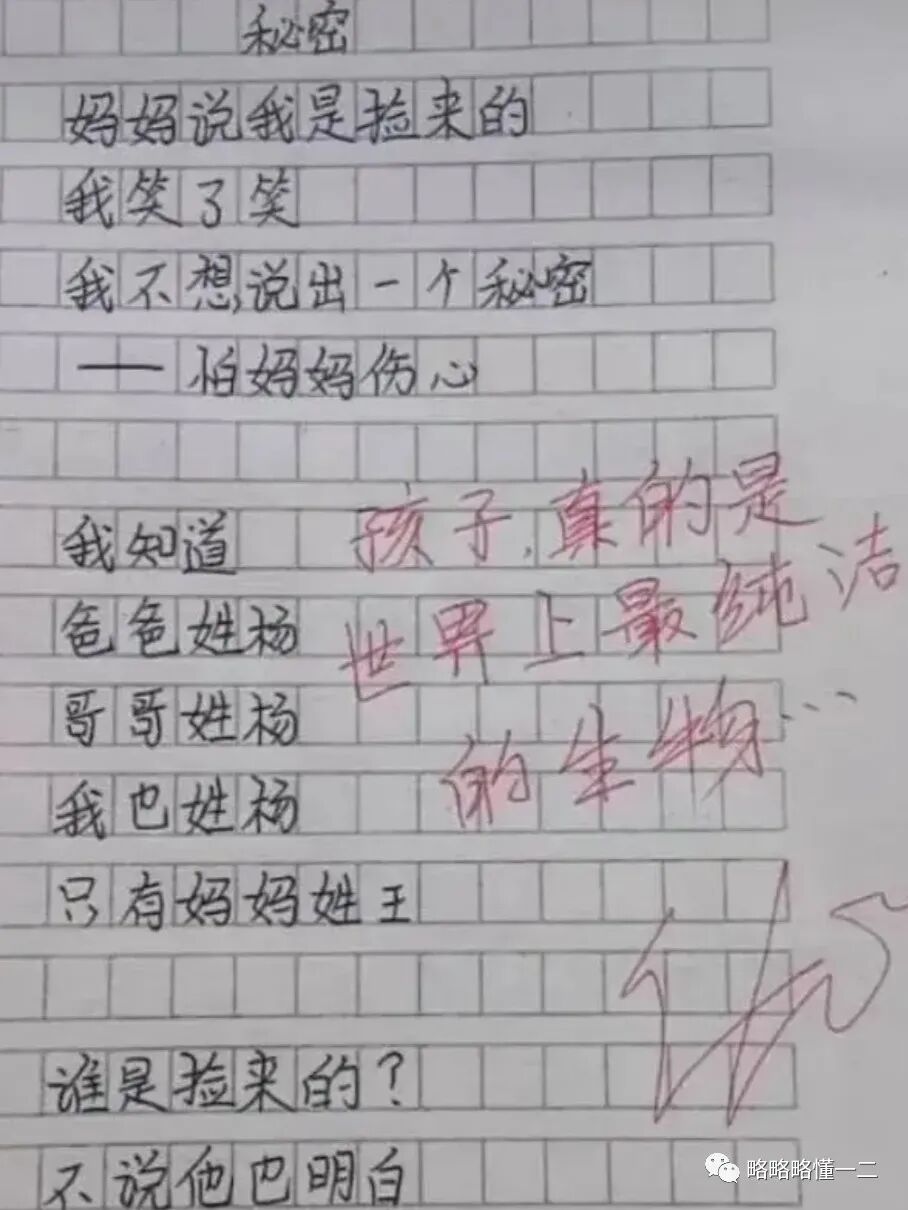 秘密
妈妈说我是捡来的
我笑了笑
我不想说出一个秘密
——怕妈妈伤心
我知道
爸爸姓杨
哥哥姓杨
我也姓杨
只有妈妈姓王
谁是捡来的?
不说他也明白
孩子,真的是
世界上最纯洁
的生物...
略略略懂一二